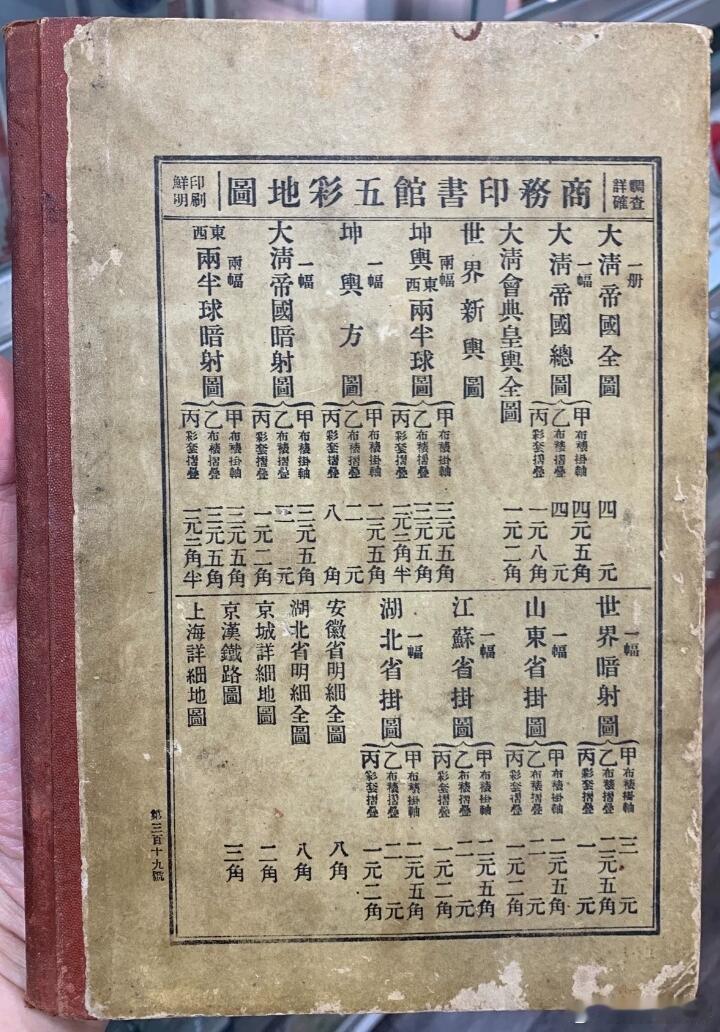 調查詳確
商務印書館五彩地圖
印刷鮮明
大清帝國全圖 一冊 四元
大清帝國總圖 一幅
甲布裱掛軸 四元五角
乙布裱摺疊 四元
丙彩套摺疊 一元八角
大清會典皇輿全圖 一元二角
世界新輿圖
坤輿東西兩半球圖 兩幅
甲布裱掛軸 三元五角
乙布裱摺疊 三元五角
丙彩套摺疊 一元二角半
坤輿方圖 一幅
甲布裱掛軸 二元五角
乙布裱摺疊 二元
丙彩套摺疊 八角
大清帝國暗射圖 一幅
甲布裱掛軸 三元五角
乙布裱摺疊 元
丙彩套摺疊 一元二角
東西兩半球暗射圖 兩幅
甲布裱掛軸 三元五角
乙布裱摺疊 三元五角
丙彩套摺疊 一元二角半
世界暗射圖 一幅
甲布裱掛軸 三元
乙布裱摺疊 二元五角
丙彩套摺疊 一元
山東省掛圖 一幅
甲布裱掛軸 二元五角
乙布裱摺疊 二元
丙彩套摺疊 一元二角
江蘇省掛圖 一幅
甲布裱掛軸 二元五角
乙布裱摺疊 二元
丙彩套摺疊 一元二角
湖北省掛圖 一幅
甲布裱掛軸 二元五角
乙布裱摺疊 二元
丙彩套摺疊 一元二角
安徽省明細全圖 八角
湖北省明細全圖 八角
京城詳細地圖 二角
京漢鐵路圖 三角
上海詳細地圖
第三百十九號